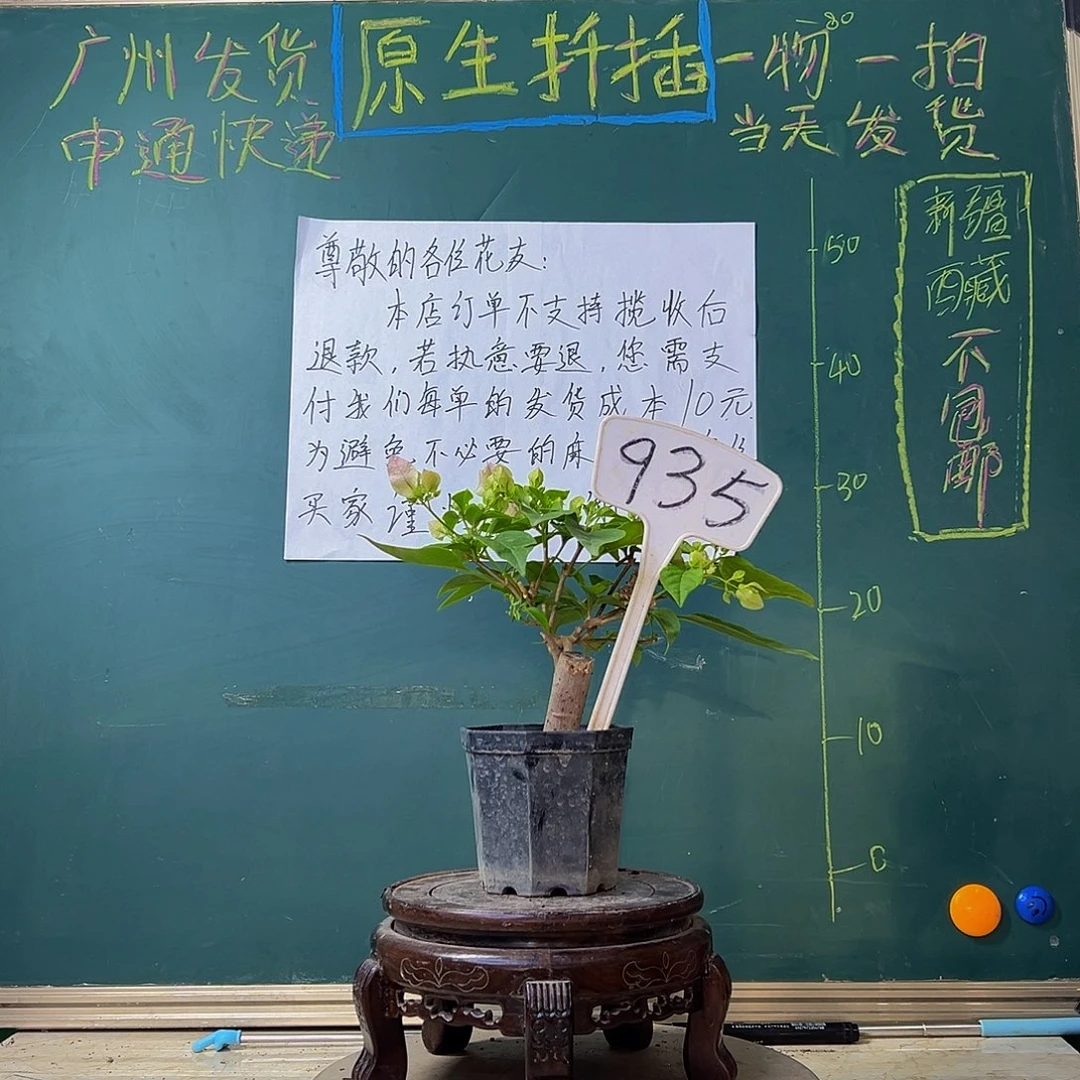 广州发货
申通快递
原生扦插
一物一拍
80
当天发货
新疆
西藏
不包邮
尊敬的各位花友:
本店订单不支持揽收后
退款,若执意要退,您需支
付我们每单的发货成本10元
为避免不必要的麻
买家谨
935
50
40
30
20
10
0